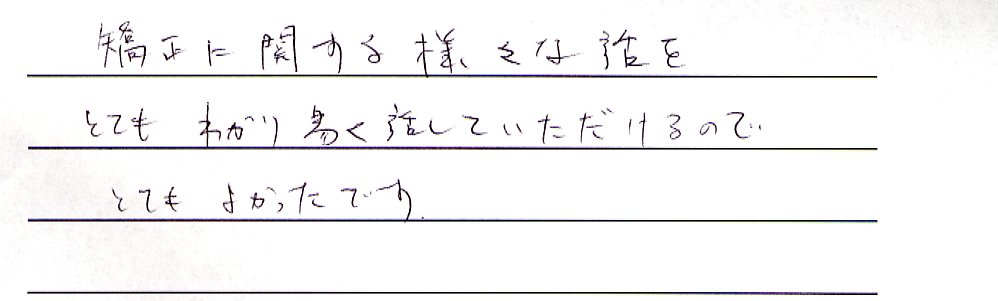 矯正に関する様々な話を
とても わかり易く話していただけるので
とても よかったです